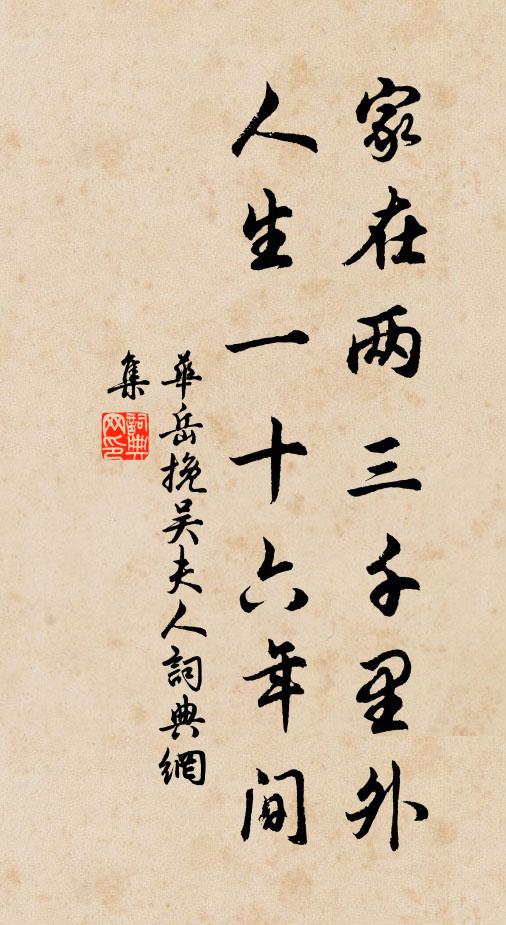 家在两三千里外
人生一十六年间
華岳挽吴夫人詞典網
集
詞典
网印